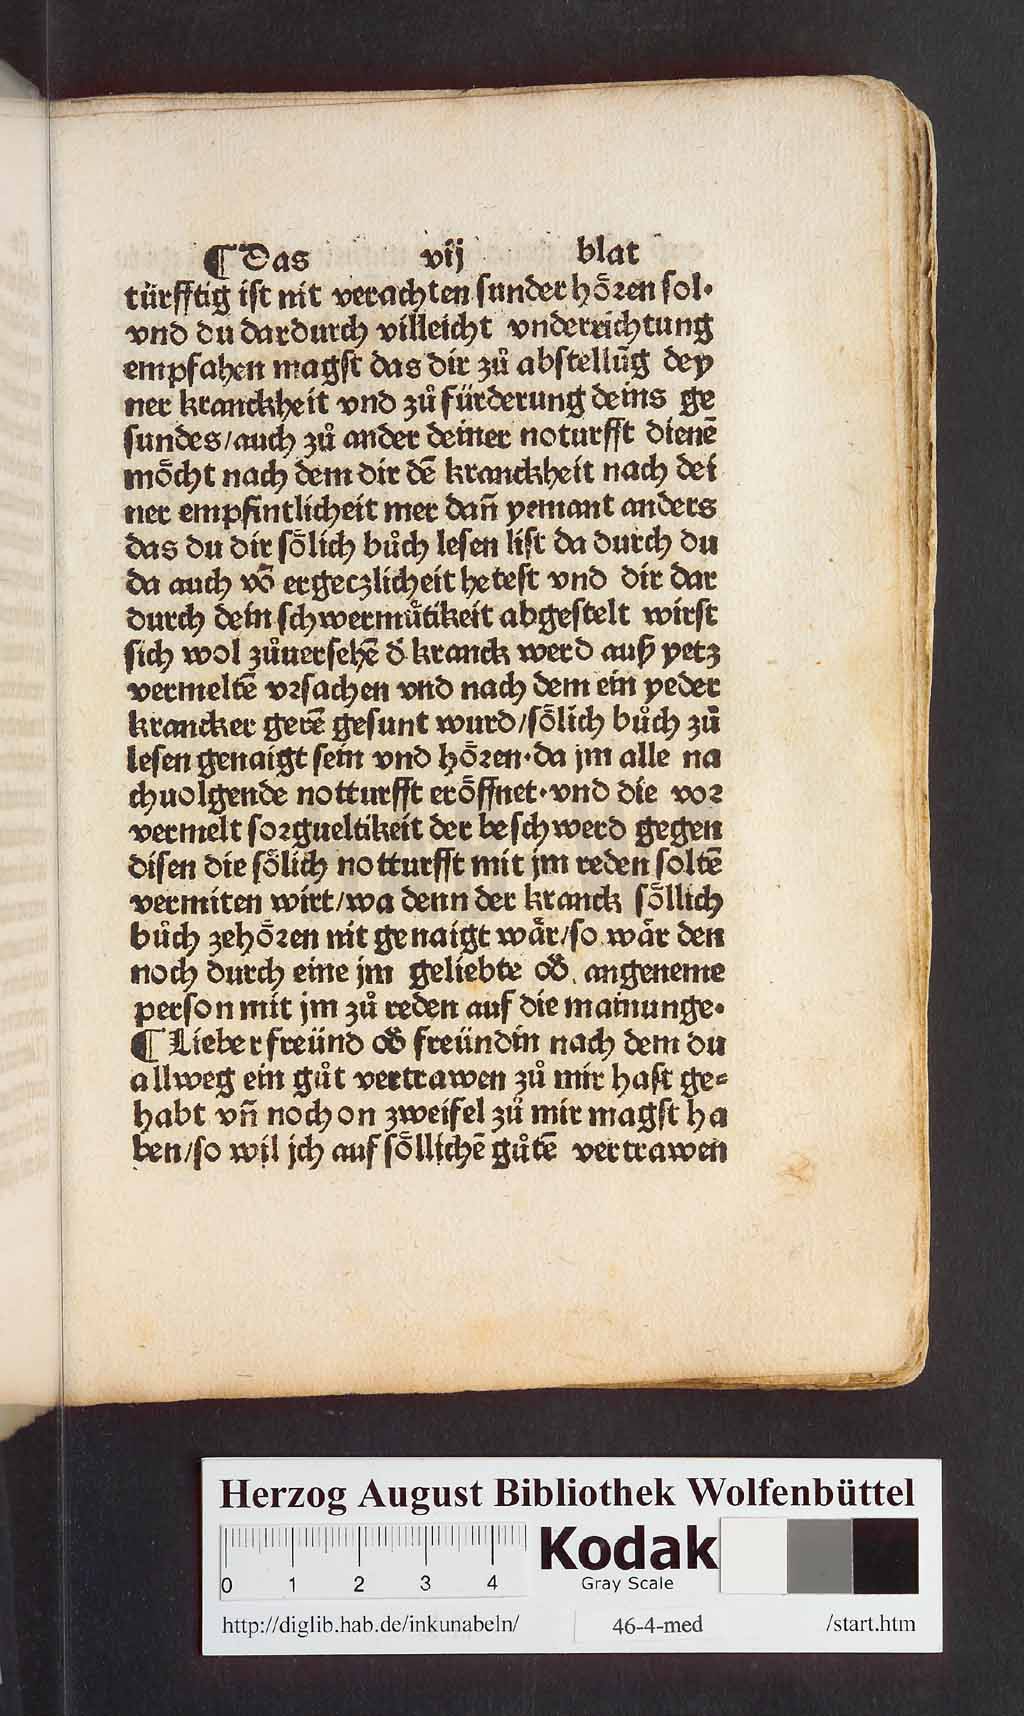 ¶ Das vij blat
türfftig ist nit verachten sunder hoͤꝛen sol·
vnd du dardurch villeicht vnderrichtung
empfahen magst das dir zuͦ abstellūg dey
ner kranckheit vnd zuͦ fürderung deins ge
sundes/auch zuͦ ander deiner noturfft dienē
moͤcht nach dem dir dē kranckheit nach dei
ner empfintlicheit mer dañ yemant anders
das du dir soͤlich buͦch lesen list da durch du
da auch vō ergeczlicheit hetest vnd dir dar
durch dein schwermuͤtikeit abgestelt wirst
sich wol zuͦuersehē d̄ kranck werd auß yetz
vermeltē vꝛsachen vnd nach dem ein yeder
krancker gerē gesunt wurd/soͤlich buͦch zuͦ
lesen genaigt sein vnd hoͤꝛen·da jm alle na
chuolgende notturfft eroͤffnet·vnd die voꝛ
vermelt soꝛgueltikeit der beschwerd gegen
disen die soͤlich notturfft mit jm reden soltē
vermiten wirt/wa denn der kranck soͤllich
buͦch zehoͤꝛen nit genaigt waͤr/so waͤr den
noch durch eine jm geliebte od̄ angeneme
person mit jm zuͦ reden auf die mainunge·
¶ Lieber freünd od̄ freündin nach dem du
allweg ein guͦt vertrawen zuͦ mir hast ge⸗
habt vñ noch on zweifel zuͦ mir magst ha
ben/so wil jch auf soͤllichē guͦtē vertrawen
Herzog August Bibliothek Wolfenbüttel
0 1 2 3 4
Kodak
Gray Scale
http://diglib.hab.de/inkunabeln/ 46-4-med /start.htm